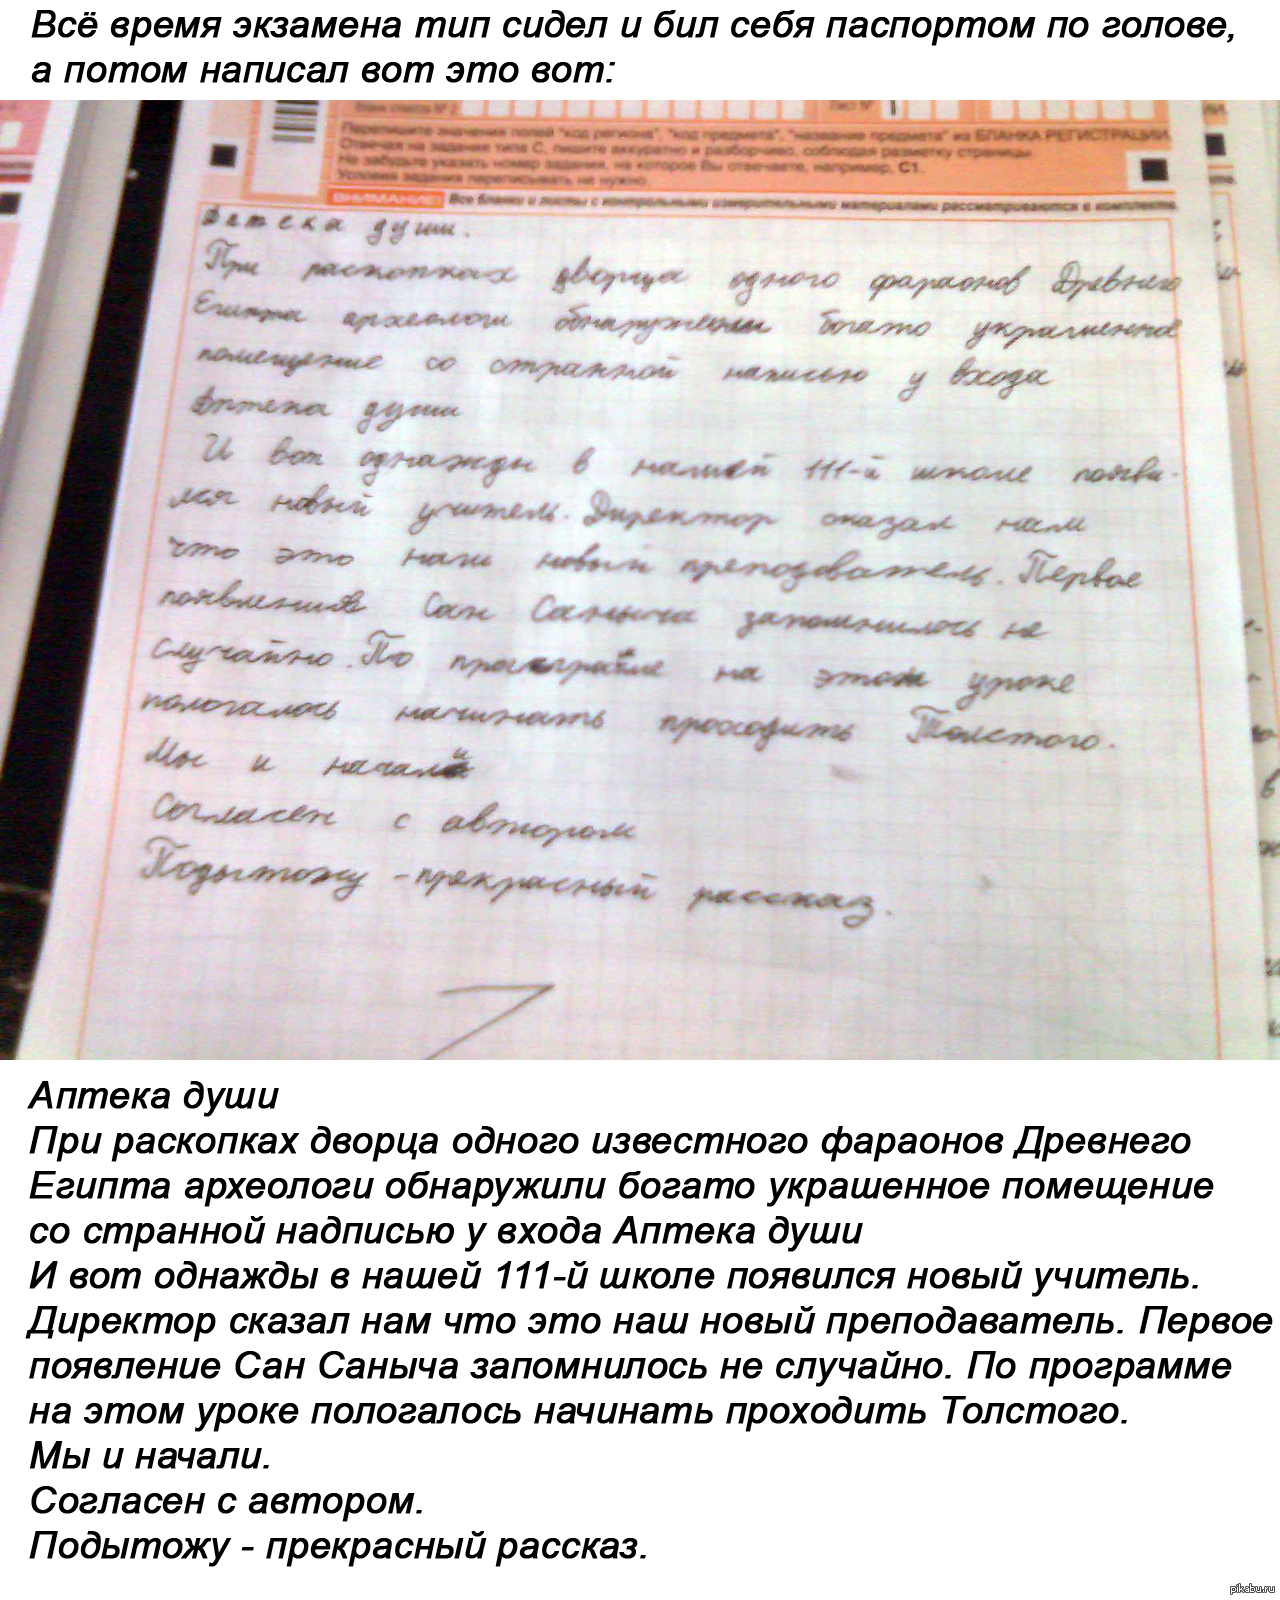 Всё время экзамена тип сидел и бил себя паспортом по голове,
а потом написал вот это вот:
Бланк ответов № 2
Лист №
Перепишите значения полей "код региона", "код предмета", "название предмета" из БЛАНКА РЕГИСТРАЦИИ.
Отвечая на задания типа С, пишите аккуратно и разборчиво, соблюдая разметку страницы.
Не забудьте указать номер задания, на которое Вы отвечаете, например, С1.
Условия задания переписывать не нужно.
ВНИМАНИЕ! Все бланки и листы с контрольными измерительными материалами рассматриваются в комплекте.
Аптека души.
При раскопках дворца одного фараонов Древнего
Египта археологи обнаружели богато украшенное
помещение со странной написью у входа
Аптека души
И вот однажды в нашей 111-й школе появи-
лся новый учитель. Директор сказал нам
что это наш новый преподователь. Первое
появление Сан Саныча запомнилось не
случайно. По программе на этом уроке
пологалось начинать проходить Толстого.
Мы и начали
Согласен с автором
Подытожу - прекрасный рассказ.
Аптека души
При раскопках дворца одного известного фараонов Древнего
Египта археологи обнаружили богато украшенное помещение
со странной надписью у входа Аптека души
И вот однажды в нашей 111-й школе появился новый учитель.
Директор сказал нам что это наш новый преподаватель. Первое
появление Сан Саныча запомнилось не случайно. По программе
на этом уроке пологалось начинать проходить Толстого.
Мы и начали.
Согласен с автором.
Подытожу - прекрасный рассказ.
pikabu.ru